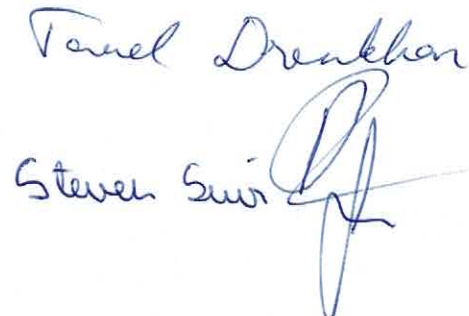 Tanel Drenkhan
Steven Suvi